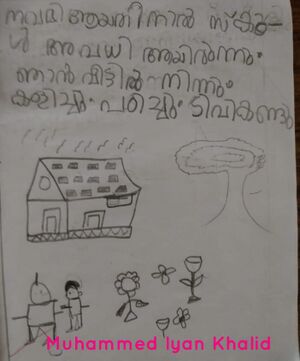 നവമി ആയതിനാൽ സ്കൂ-
ൾ അവധി ആയിരുന്നു.
ഞാൻ വീട്ടിൽ നിന്നും
കളിച്ചു. പഠിച്ചു. ടിവികണ്ടു
Muhammed Iyan Khalid